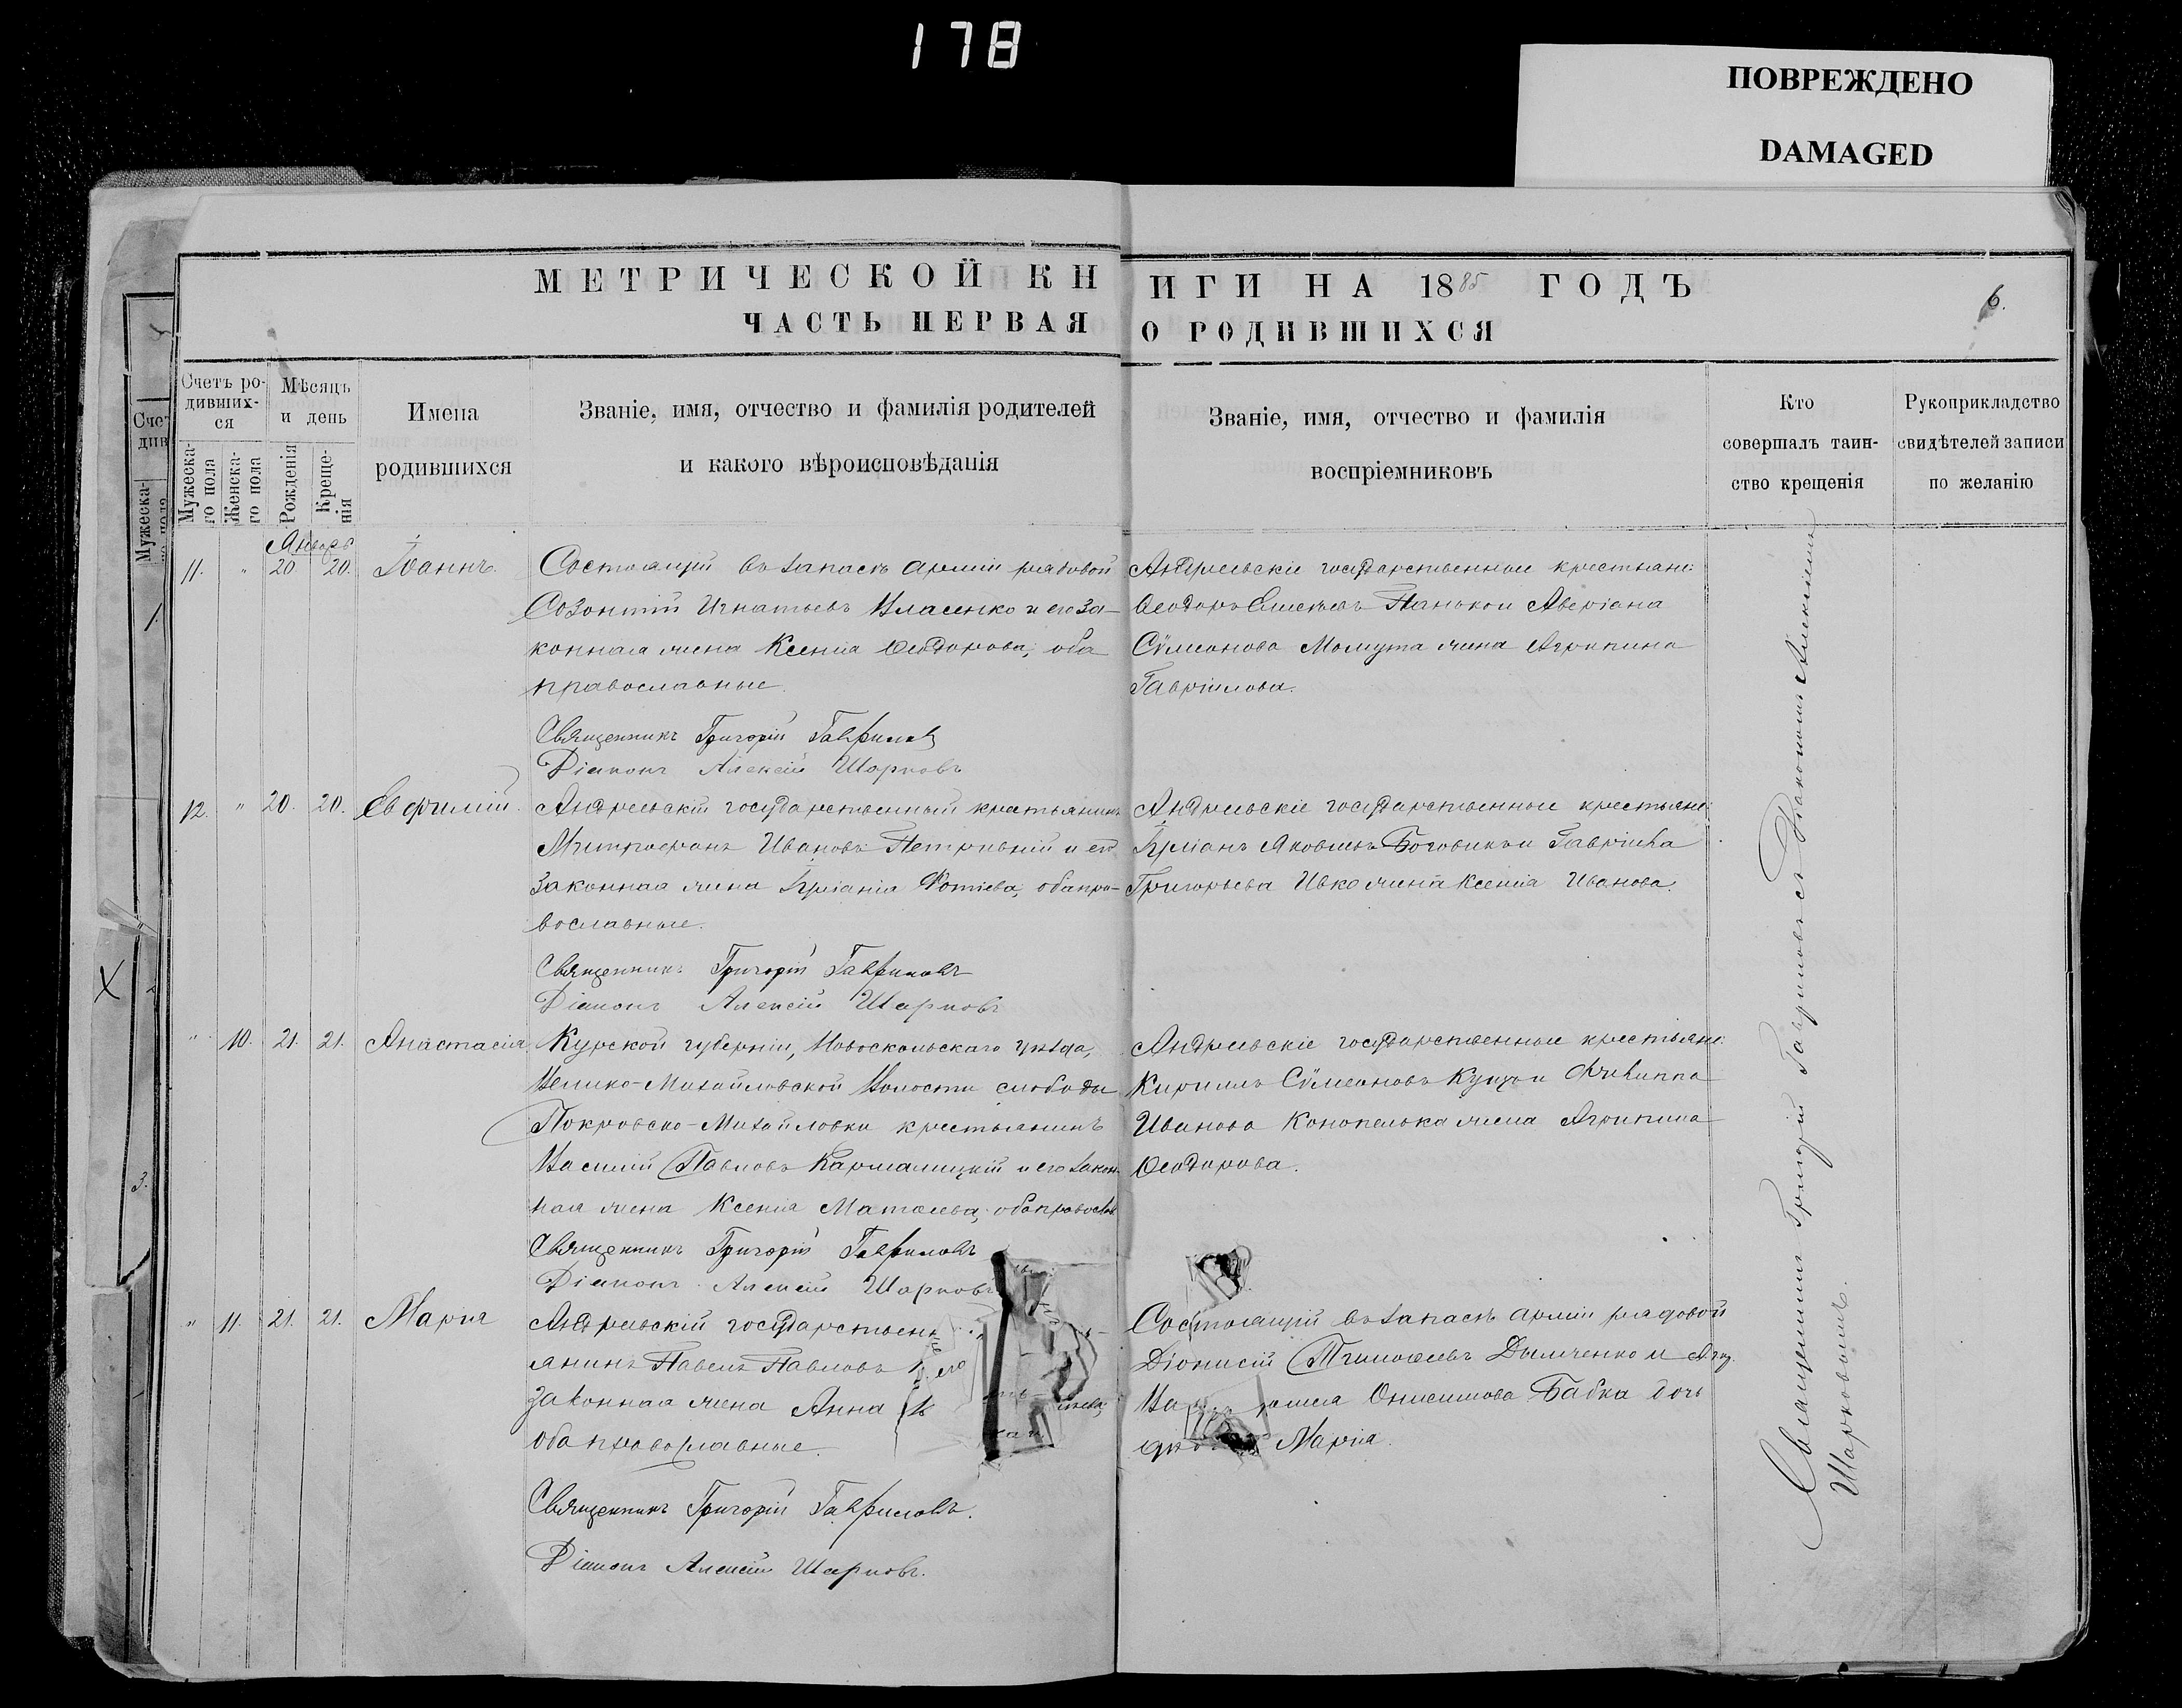 178
ПОВРЕЖДЕНО
DAMAGED
МЕТРИЧЕСКОЙ КНИГИ НА 1885 ГОДЪ
ЧАСТЬ ПЕРВАЯ О РОДИВШИХСЯ
6.
Счетъ ро-
дивших-
ся
Мужеска-
го пола
Женска-
го пола
Мѣсяцъ
и день
Рожденія
Креще-
нія
Имена
родившихся
Званіе, имя, отчество и фамилія родителей
и какого вѣроисповѣданія
Званіе, имя, отчество и фамилія
воспріемниковъ
Кто
совершалъ таин-
ство крещенія
Рукоприкладство
свидѣтелей записи
по желанію
Январь
11. " 20 20. Іоаннъ.
Состоящій въ запасѣ арміи рядовой
Созонтій Игнатьевъ Власенко и его за-
конная жена Ксенія Ѳеодорова, оба
православные.
Священникъ Григорій Гавриловъ
Діаконъ Алексій Шарковъ
Андреевскіе государственные крестьяне:
Ѳеодоръ Панько и Аверіана
Сѵмеонова жена Агрипина
Гавріилова.
12. " 20. 20. Евфимій.
Андреевскій государственный крестьянинъ
Митрофанъ Ивановъ и его
законная жена Іуліанія Фотіева, оба пра-
вославные.
Священникъ Григорій Гавриловъ
Діаконъ Алексій Шарковъ
Андреевскіе государственные крестьяне:
Іуліанъ Яковлевъ и Гавріила
Григорьева Ивко жена Ксенія Иванова.
" 10. 21. 21. Анастасія
Курской губерніи, Новооскольскаго уѣзда,
Велико-Михайловской Волости слободы
Покровско-Михайловки крестьянинъ
Василій Павловъ Кармалицкій и его закон-
ная жена Ксенія Матѳеева, оба православ
Священникъ Григорій Гавриловъ
Діаконъ Алексій Шарковъ
Андреевскіе государственные крестьяне:
Кириллъ Сѵмеоновъ и Филиппа
Иванова Конопелька жена Агрипина
Ѳеодорова.
" 11. 21. 21. Марія
Андреевскій государственн
янинъ Павелъ Павловъ его
законная жена Анна
оба православные.
Священникъ Григорій Гавриловъ.
Діаконъ Алексій Шарковъ.
Состоящій въ запасѣ арміи рядовой
Діонисій Тимоѳеевъ Дымченко и
Онисимова Бабка дочь
Марія.
Священникъ Григорій Гавриловъ съ Діакономъ Алексіемъ
Шарковымъ.